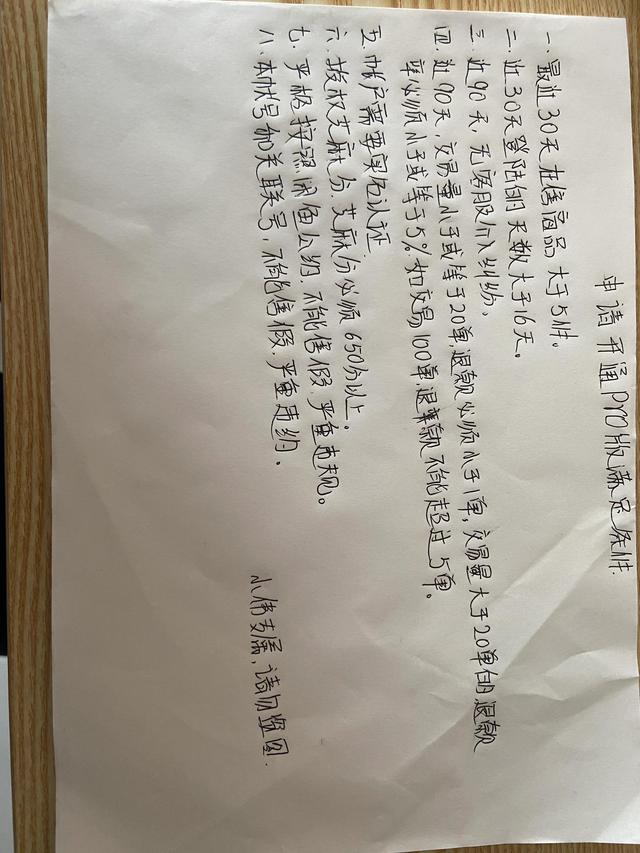 申请开通Pro版满足条件.
一、最近30天在售商品大于5件。
二、近30天登陆的天数大于16天。
三、近90天,无客服介入纠纷、
四、近90天,交易量小于或等于20单,退款必须小于1单,交易量大于20单的退款
率必须小于或等于5%如交易100单,退款不能超过5单。
五、帐户需要实名认证
六、授权芝麻分.芝麻分必须650分以上。
七、严格按照闲鱼公约.不能售假.严重违规。
八、本帐号和关联号,不能售假.严重违约.
小伟专属,请勿盗图.